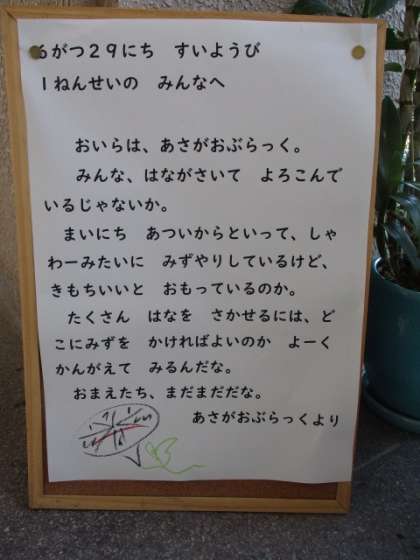 6がつ29にち　すいようび
1ねんせいの　みんなへ
おいらは、あさがおぶらっく。
みんな、はながさいて　よろこんで
いるじゃないか。
まいにち　あついからといって、しゃ
わーみたいに　みずやりしているけど、
きもちいいと　おもっているのか。
たくさん　はなを　さかせるには、ど
こにみずを　かければよいのか　よーく
かんがえて　みるんだな。
おまえたち、まだまだだな。
あさがおぶらっくより